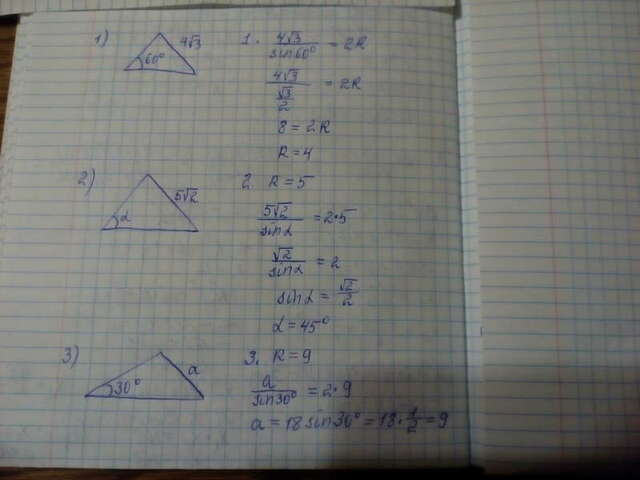 1) 60° 4√3
1. 4√3/sin60° = 2R
4√3/(√3/2) = 2R
8 = 2R
R = 4
2) α 5√2
2 R = 5
5√2/sinα = 2·5
√2/sinα = 2
sinα = √2/2
α = 45°
3) 30° a
3. R = 9
a/sin30° = 2·9
a = 18sin30° = 18·1/2 = 9